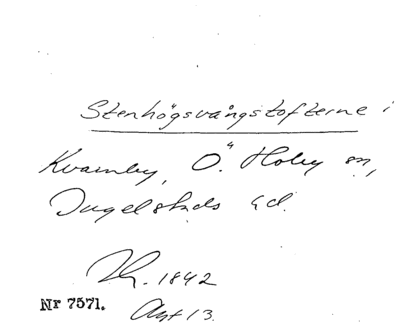 Stenhögsvångstofterne i
Kvarnby, Ö. Hoby sn,
Ingelstads hd.
Th. 1842
Nr 7571. Akt 13.